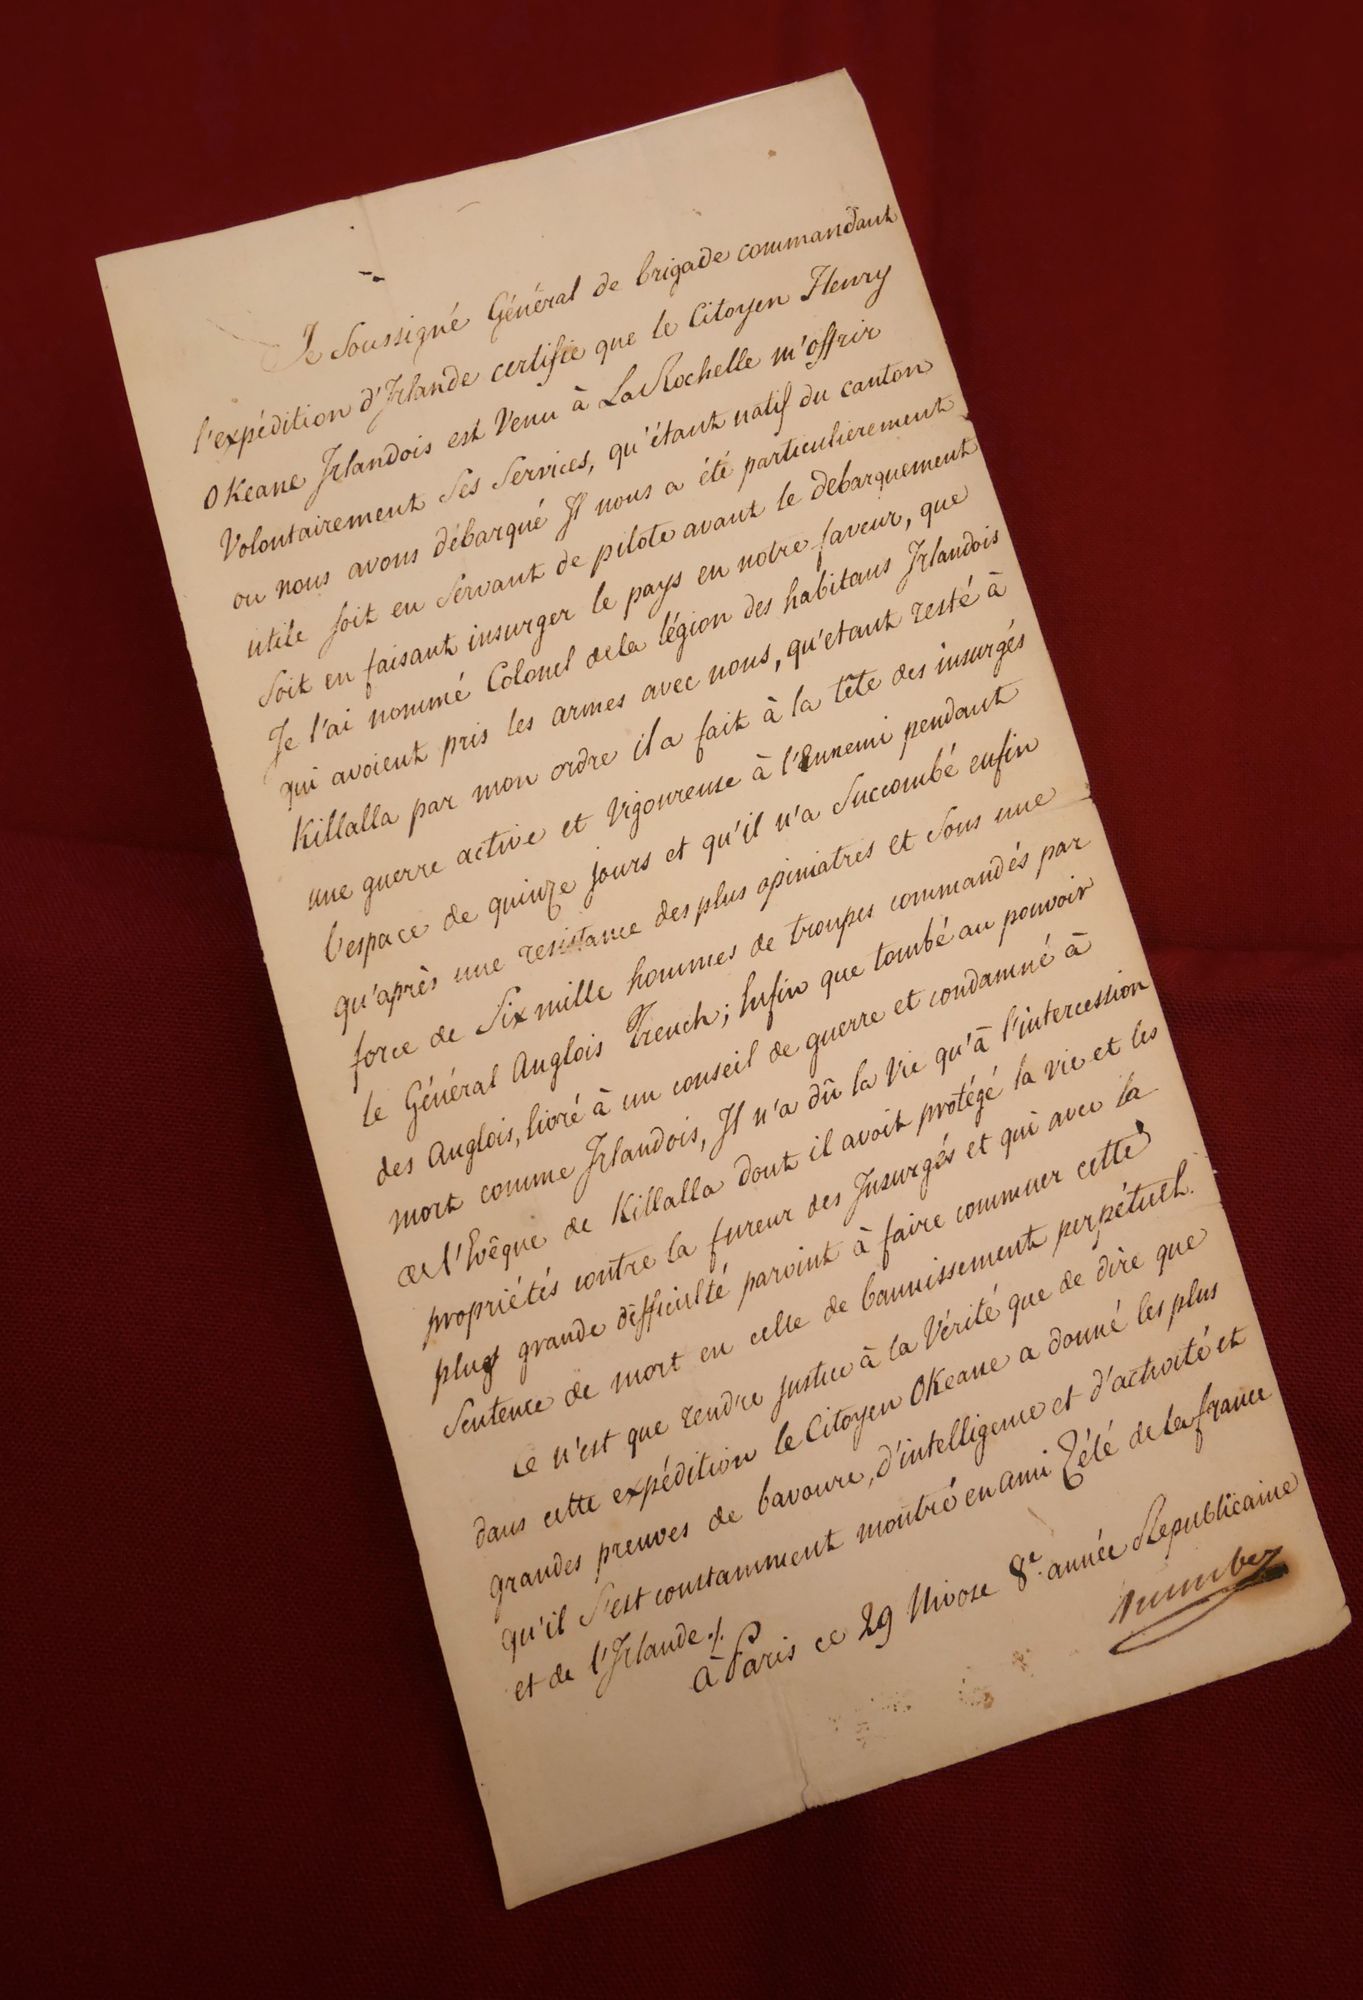 Je Soussigné Général de brigade commandant
l'expédition d'Irlande certifie que le Citoyen Henry
OKeane Irlandois est Venu à La Rochelle m'offrir
Volontairement Ses Services, qu'étant natif du canton
ou nous avons débarqué Il nous a été particulierement
utile soit en Servant de pilote avant le debarquement
Soit en faisant insurger le pays en notre faveur, que
Je l'ai nommé Colonel de la légion des habitans Irlandois
qui avoient pris les armes avec nous, qu'étant resté à
Killalla par mon ordre il a fait à la tête des insurgés
une guerre active et Vigoureuse à l'Ennemi pendant
l'espace de quinze jours et qu'il n'a Succombé enfin
qu'après une resistance des plus opiniatres et Sous une
force de Six mille hommes de troupes commandés par
le Général Anglois Trench; Enfin que tombé au pouvoir
des Anglois, livré à un conseil de guerre et condamné à
mort comme Irlandois, Il n'a dû la Vie qu'à l'intercession
de l'Evêque de Killalla dont il avoit protégé la vie et les
propriétés contre la fureur des Insurgés et qui avec la
plus grande difficulté parvint à faire commuer cette
Sentence de mort en celle de bannissement perpétuel.
Ce n'est que rendre justice à la Vérité que de dire que
dans cette expédition le Citoyen OKeane a donné les plus
grandes preuves de bavoure, d'intelligence et d'activité et
qu'il S'est constamment montré en ami Zélé de la france
et de l'Irlande ./.
à Paris ce 29 Nivose 8e. année Republicaine
Humbert